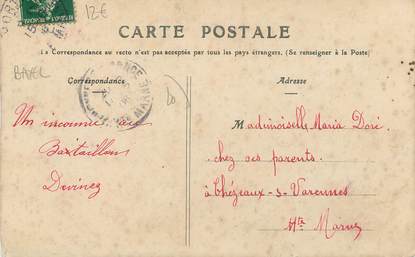 12€
CARTE POSTALE
La Correspondance au recto n'est pas acceptée par tous les pays étrangers. (Se renseigner à la Poste)
Correspondance
Adresse
Un inconnu
Devinez
Mademoiselle Maria Doré
chez ses parents
à Chézeaux-s-Varennes
Hte Marne